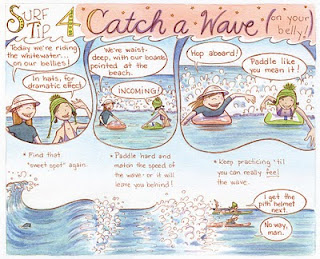 SURF TIP 4 Catch a Wave (on your belly!)
Today we're riding
the whitewater...
on our bellies!
In hats, for
dramatic effect.
We've waist-
deep, with our boards
pointed at the
beach.
INCOMING!
Hop aboard!
Paddle like
you mean it!
• Find that
"sweet spot" again.
• Paddle hard and
match the speed
of the wave - or it
will leave you behind!
• Keep practicing 'til
you can really feel
the wave.
I get the
pith helmet
next.
No way,
man.